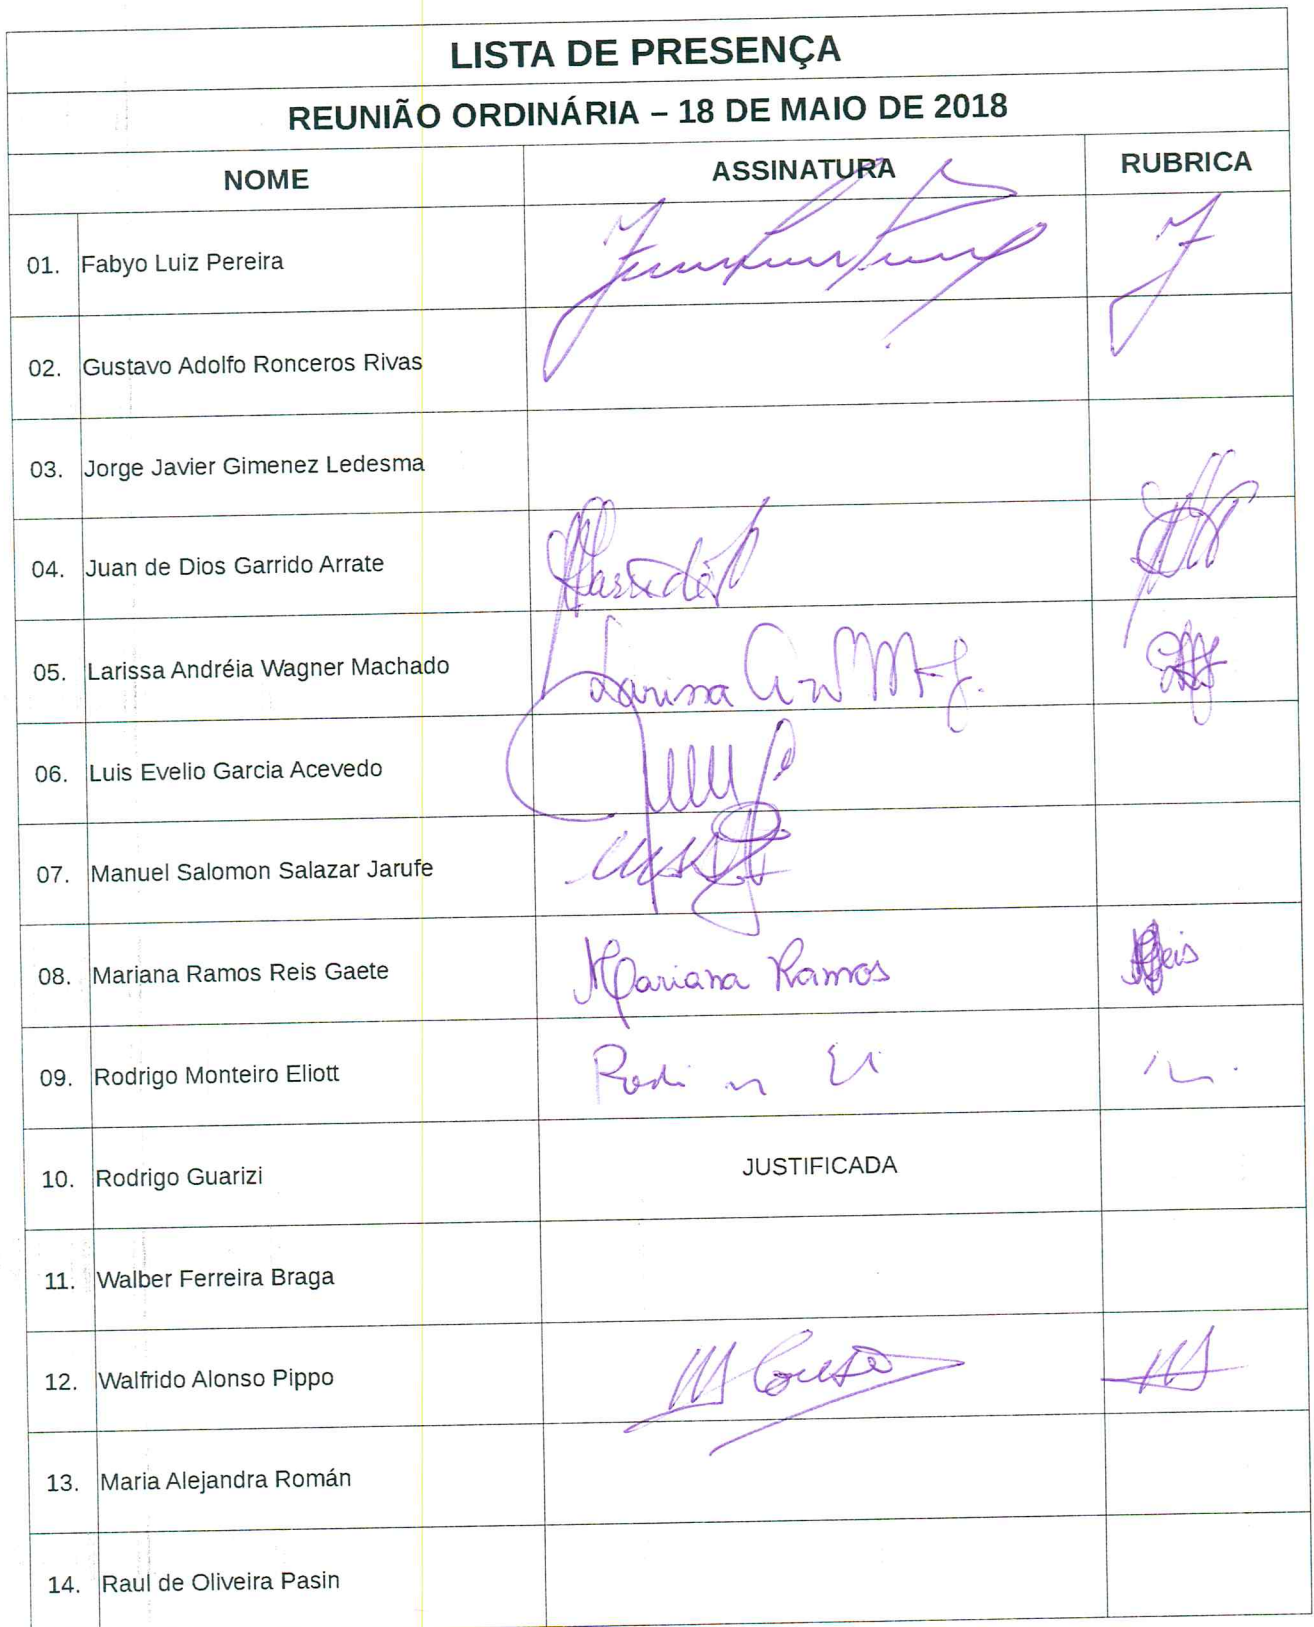 LISTA DE PRESENÇA
REUNIÃO ORDINÁRIA – 18 DE MAIO DE 2018
NOME ASSINATURA RUBRICA
01. Fabyo Luiz Pereira
02. Gustavo Adolfo Ronceros Rivas
03. Jorge Javier Gimenez Ledesma
04. Juan de Dios Garrido Arrate
05. Larissa Andréia Wagner Machado Larissa
06. Luis Evelio Garcia Acevedo
07. Manuel Salomon Salazar Jarufe
08. Mariana Ramos Reis Gaete Mariana Ramos Reis
09. Rodrigo Monteiro Eliott
10. Rodrigo Guarizi JUSTIFICADA
11. Walber Ferreira Braga
12. Walfrido Alonso Pippo
13. Maria Alejandra Román
14. Raul de Oliveira Pasin